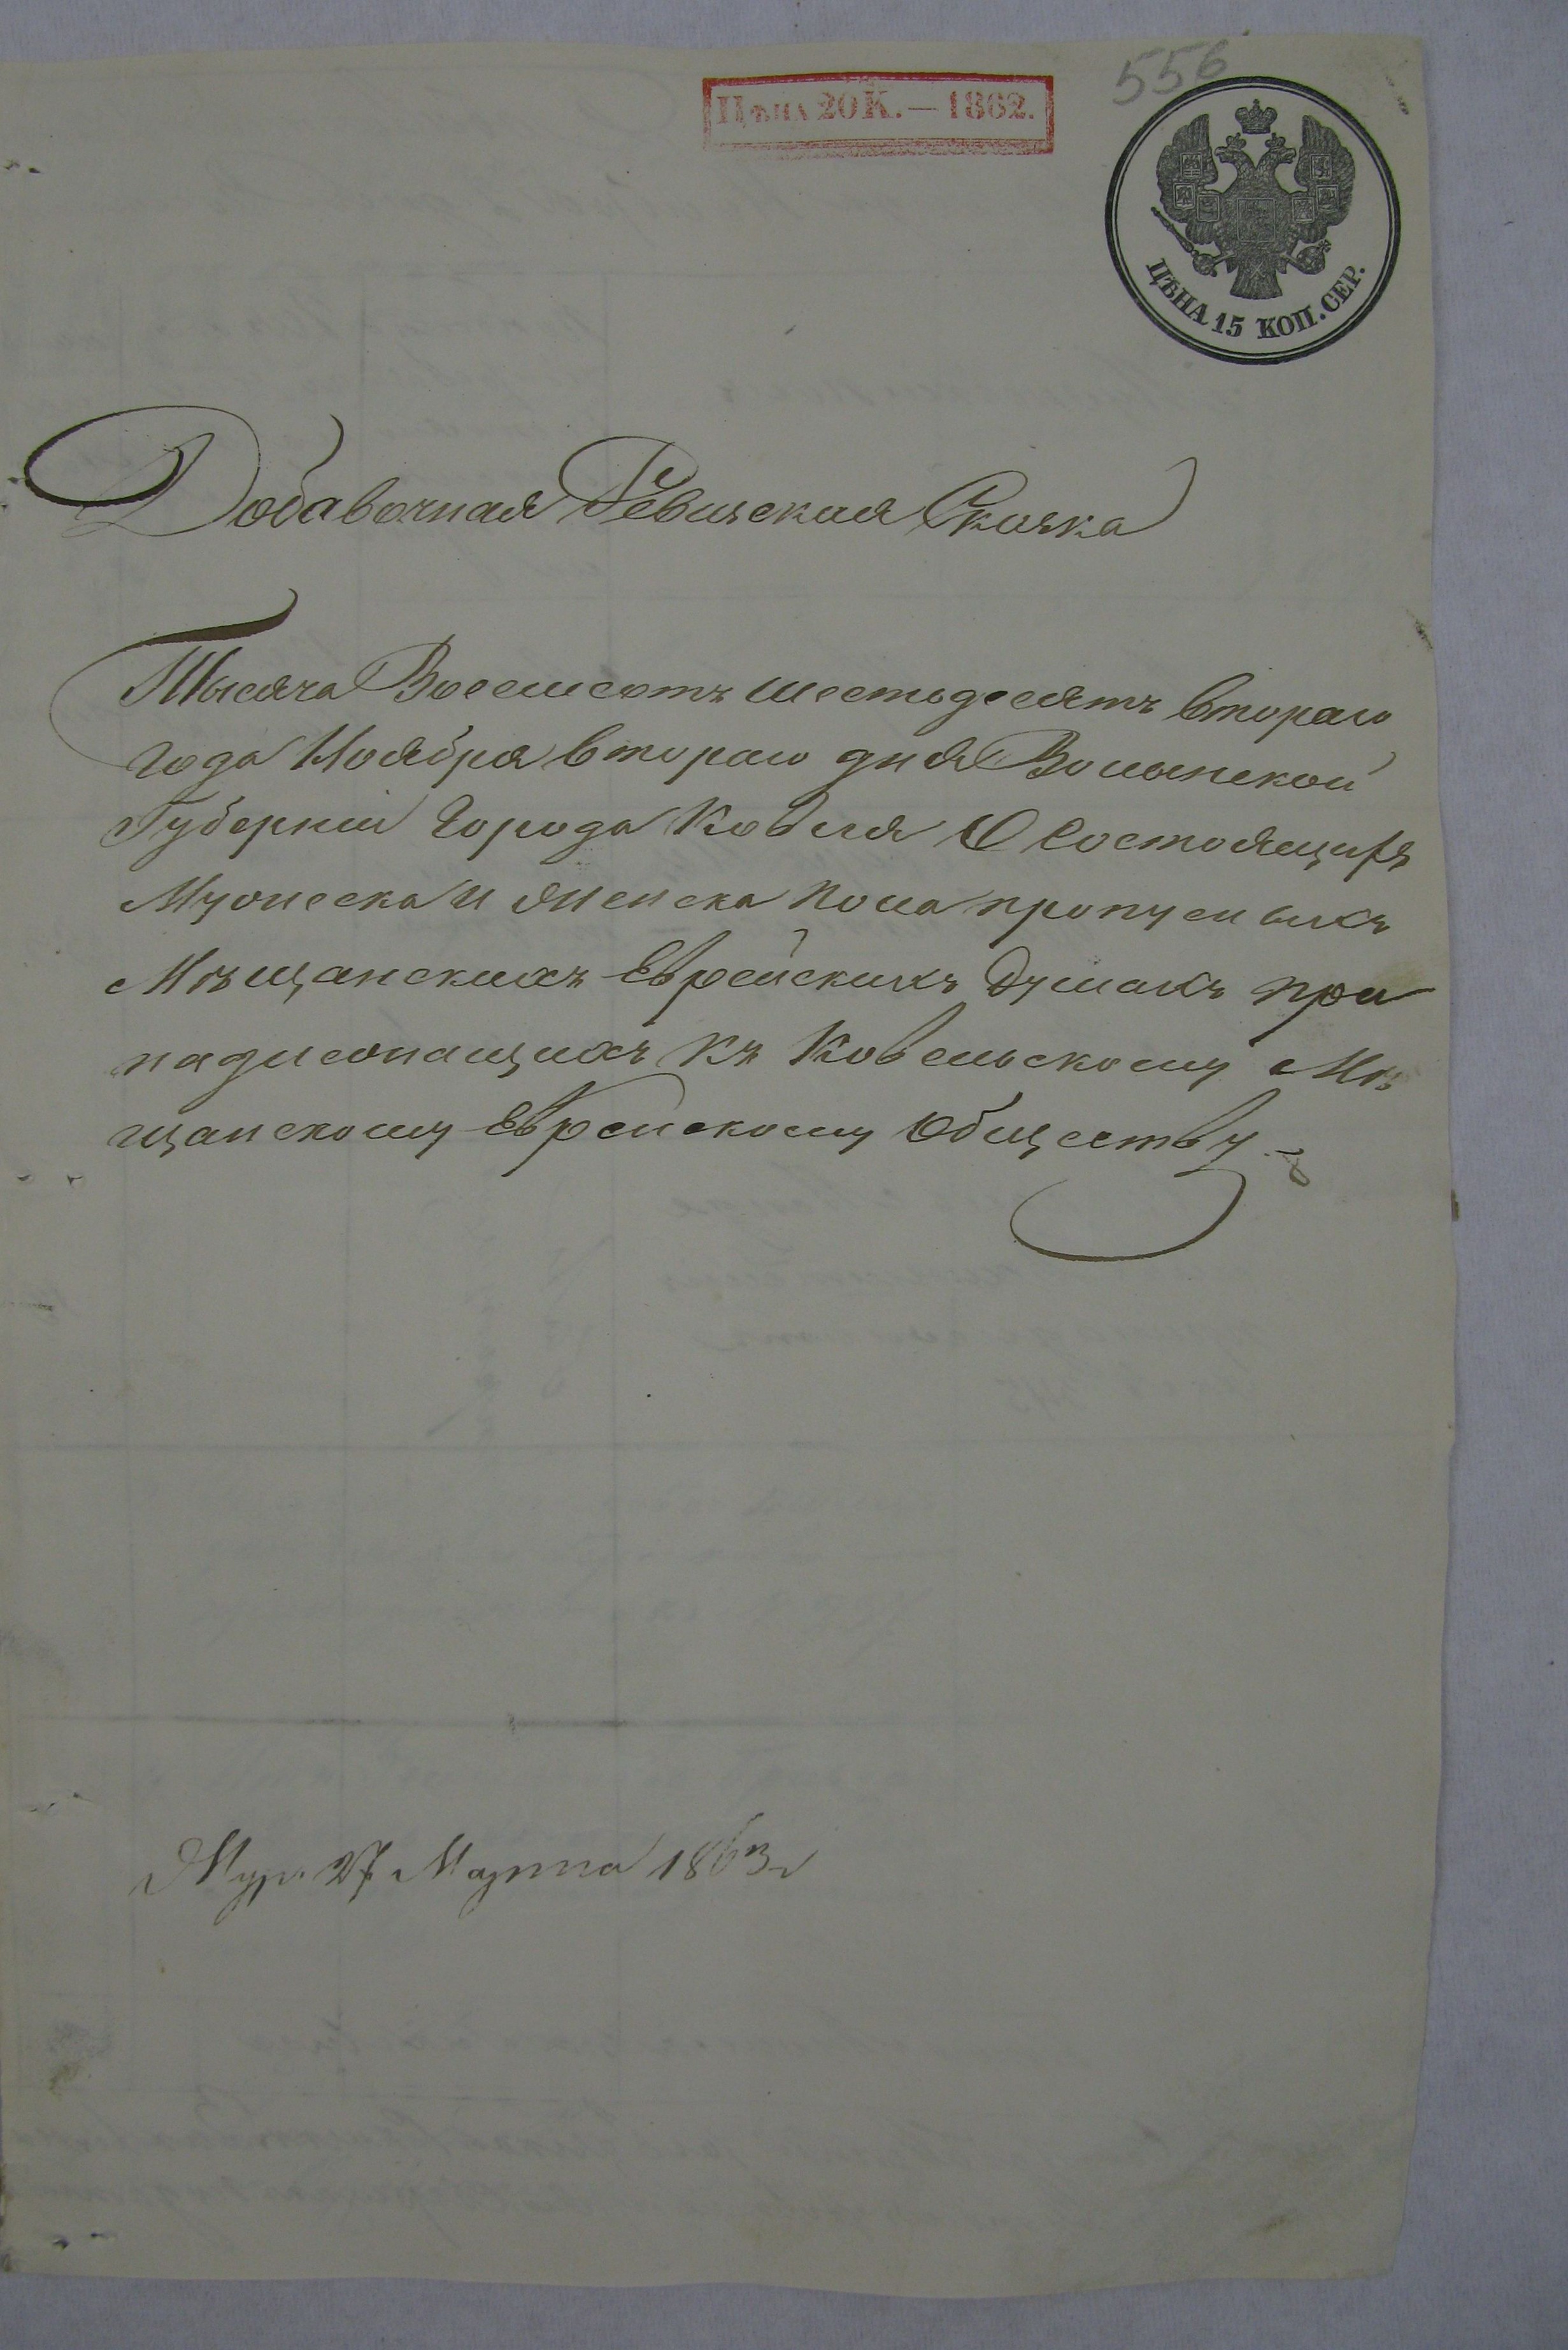 556
Цѣна 20 К. — 1862.
ЦѢНА 15 КОП. СЕР.
Добавочная Ревизская Сказка
Тысяча Восемсотъ шестьдесятъ втораго
года Ноября втораго дня Волынской
Губерніи Города Ковля О Состоящихъ
Мужеска и Женска пола пропусныхъ
Мѣщанскихъ Еврейскихъ Душахъ при
надлежащихъ къ Ковельскому Мѣ
щанскому Еврейскому Обществу.
27 Марта 1863